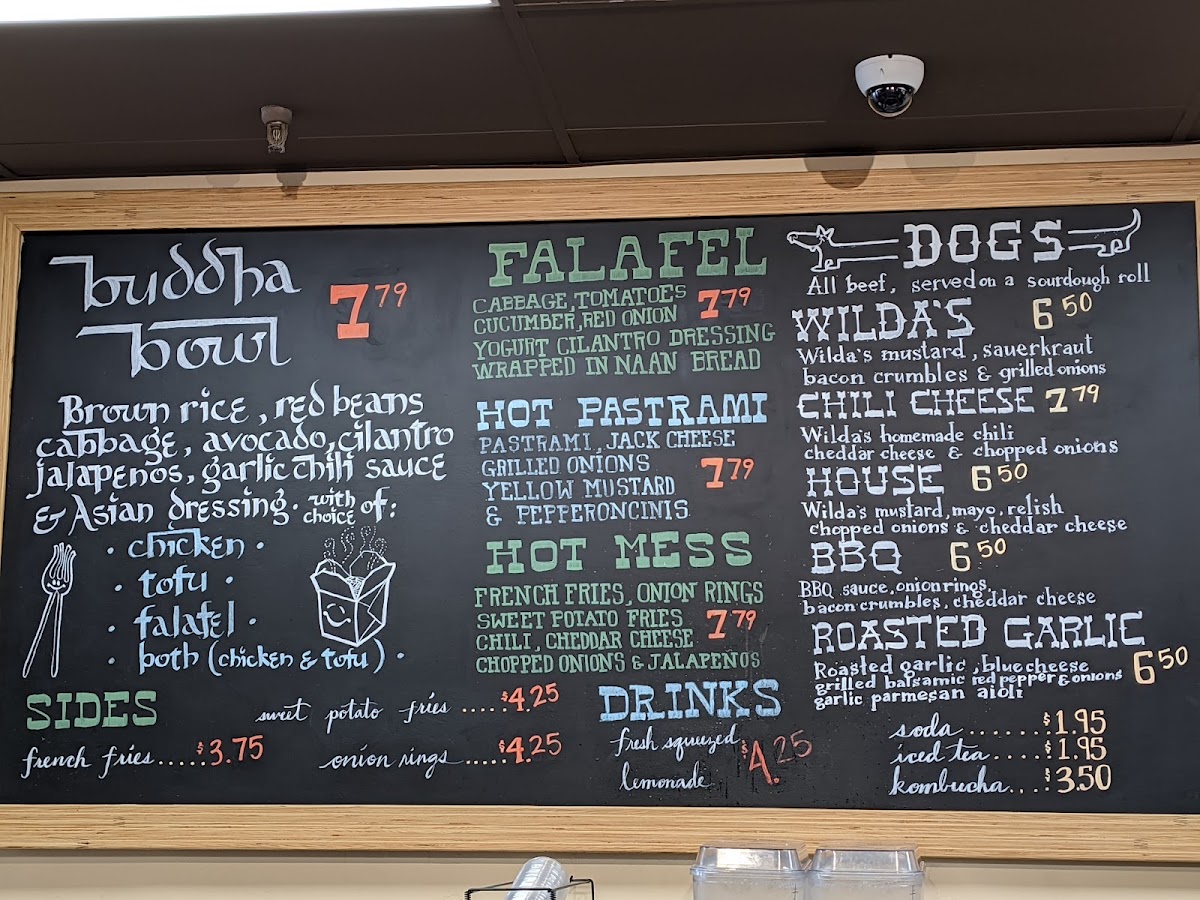 buddha
bowl
7 79
Brown rice, red beans
cabbage, avocado, cilantro
jalapenos, garlic chili sauce
& Asian dressing. with choice of:
· chicken ·
· tofu ·
· falafel ·
· both (chicken & tofu) ·
SIDES
french fries.....$3.75
sweet potato fries.....$4.25
onion rings.....$4.25
FALAFEL
CABBAGE, TOMATOES 7 79
CUCUMBER, RED ONION
YOGURT CILANTRO DRESSING
WRAPPED IN NAAN BREAD
HOT PASTRAMI
PASTRAMI, JACK CHEESE
GRILLED ONIONS 7 79
YELLOW MUSTARD
& PEPPERONCINIS
HOT MESS
FRENCH FRIES, ONION RINGS
SWEET POTATO FRIES 7 79
CHILI, CHEDDAR CHEESE
CHOPPED ONIONS & JALAPENOS
DRINKS
fresh squeezed
lemonade $4.25
DOGS
All beef, served on a sourdough roll
WILDA'S 6 50
Wilda's mustard, sauerkraut
bacon crumbles & grilled onions
CHILI CHEESE 7 79
Wilda's homemade chili
cheddar cheese & chopped onions
HOUSE 6 50
Wilda's mustard, mayo, relish
chopped onions & cheddar cheese
BBQ 6 50
BBQ sauce, onion rings,
bacon crumbles, cheddar cheese
ROASTED GARLIC
Roasted garlic, blue cheese 6 50
grilled balsamic red pepper & onions
garlic parmesan aioli
soda......$1.95
iced tea.....$1.95
kombucha...$3.50